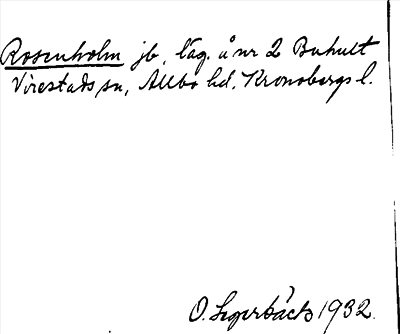 Rosenholm jb, läg. å nr 2 Buhult
Virestads sn, Allbo hd, Kronobergs l.
O. 1932.